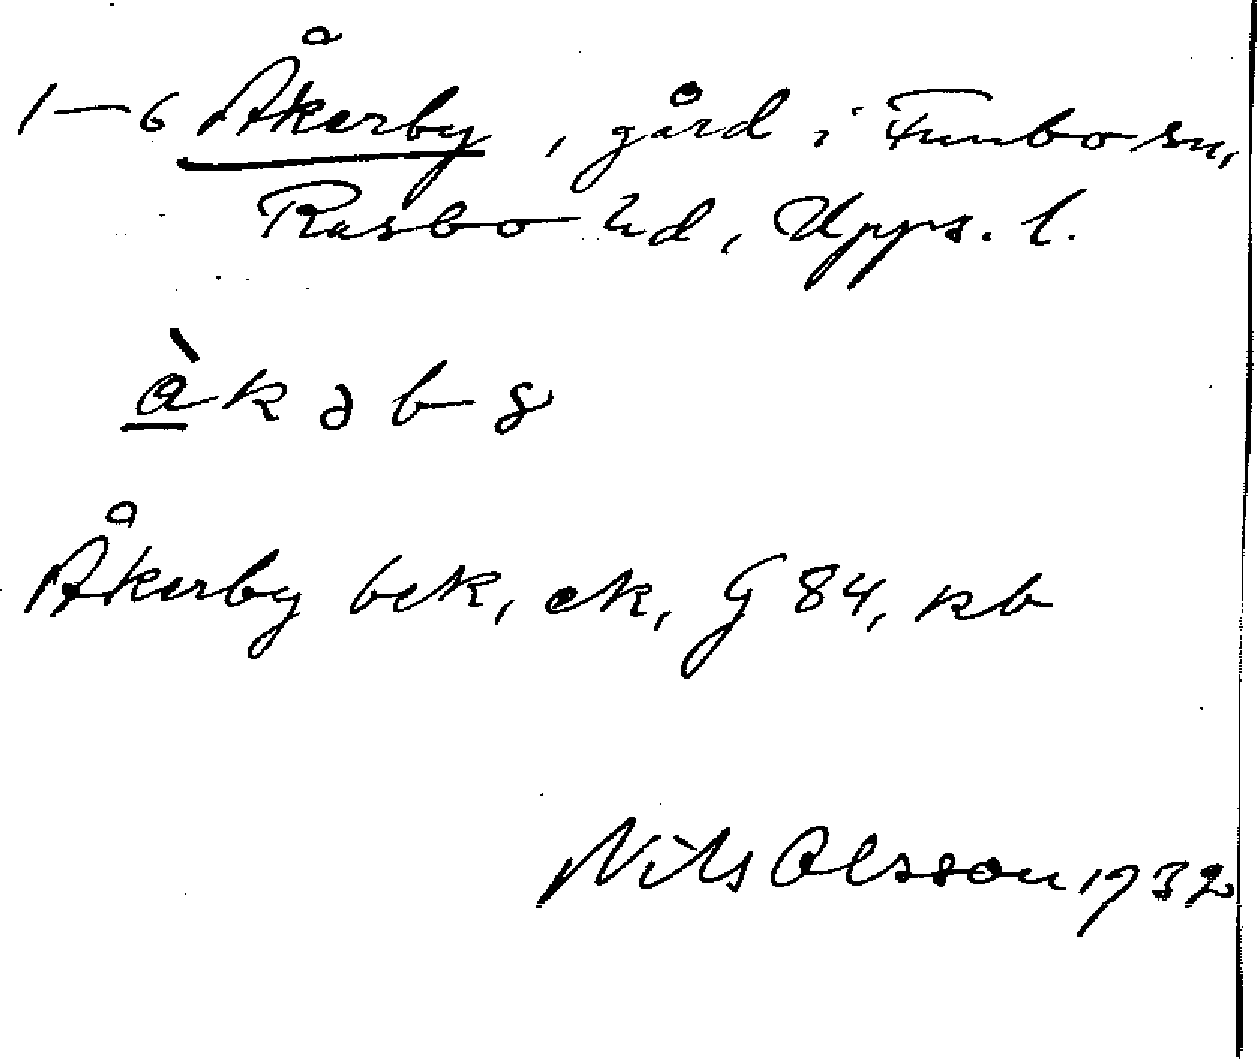 1–6 Åkerby, gård i Funbo sn,
Rasbo hd, Upps. l.
Åkerby bek, ek, G 84, kb
Nils Olsson 1932